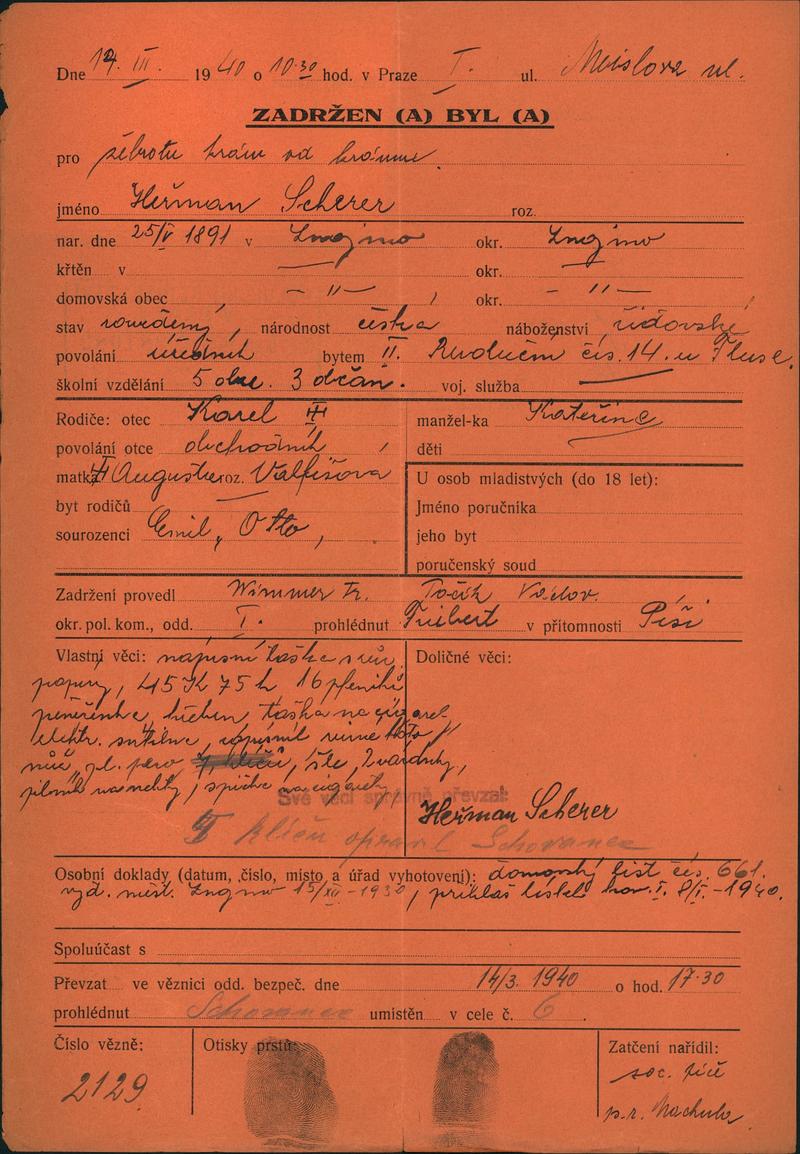 Dne 14. III. 1940 o 10·30 hod. v Praze I. ul. Meislova ul.
ZADRŽEN (A) BYL (A)
pro žebrotu krám od krámu.
jméno Heřman Scherer roz.
nar. dne 25/V 1891 v Znojmo okr. Znojmo
křtěn v — okr. —
domovská obec, — " — okr. — " —
stav rozvedený, národnost česká náboženství židovské
povolání úředník bytem II. čís. 14. u
školní vzdělání 5 obec. 3 měšťan. voj. služba —
Rodiče: otec Karel
povolání otce obchodník
matka Augusta roz.
byt rodičů —
sourozenci Emil, Otto,
manžel-ka Kateřina
děti
U osob mladistvých (do 18 let):
Jméno poručníka
jeho byt
poručenský soud
Zadržení provedl Wimmer Fr. Václav.
okr. pol. kom., odd. I. prohlédnut v přítomnosti
Vlastní věci: náprsní taška s růz.
papíry, 45 K 75 h 16 feniků
peněženka, hřeben, taška na cigaret.
elektr. svítilna,
nůž, pl. pero klíčů, šle,
pilník na nehty, špička na cigarety
Své věci správně převzal:
klíčů opravil Schovanec
Doličné věci:
Heřman Scherer
Osobní doklady (datum, číslo, místo a úřad vyhotovení): domovský list čís. 661.
vyd. měst. Znojmo 15/XII - 1930, přihláš. lístek 8/I. - 1940.
Spoluúčast s
Převzat ve věznici odd. bezpeč. dne 14/3. 1940 o hod. 17·30
prohlédnut Schovanec umístěn v cele č. 6.
Číslo vězně:
2129
Otisky prstů:
Zatčení nařídil:
p.r. Machula